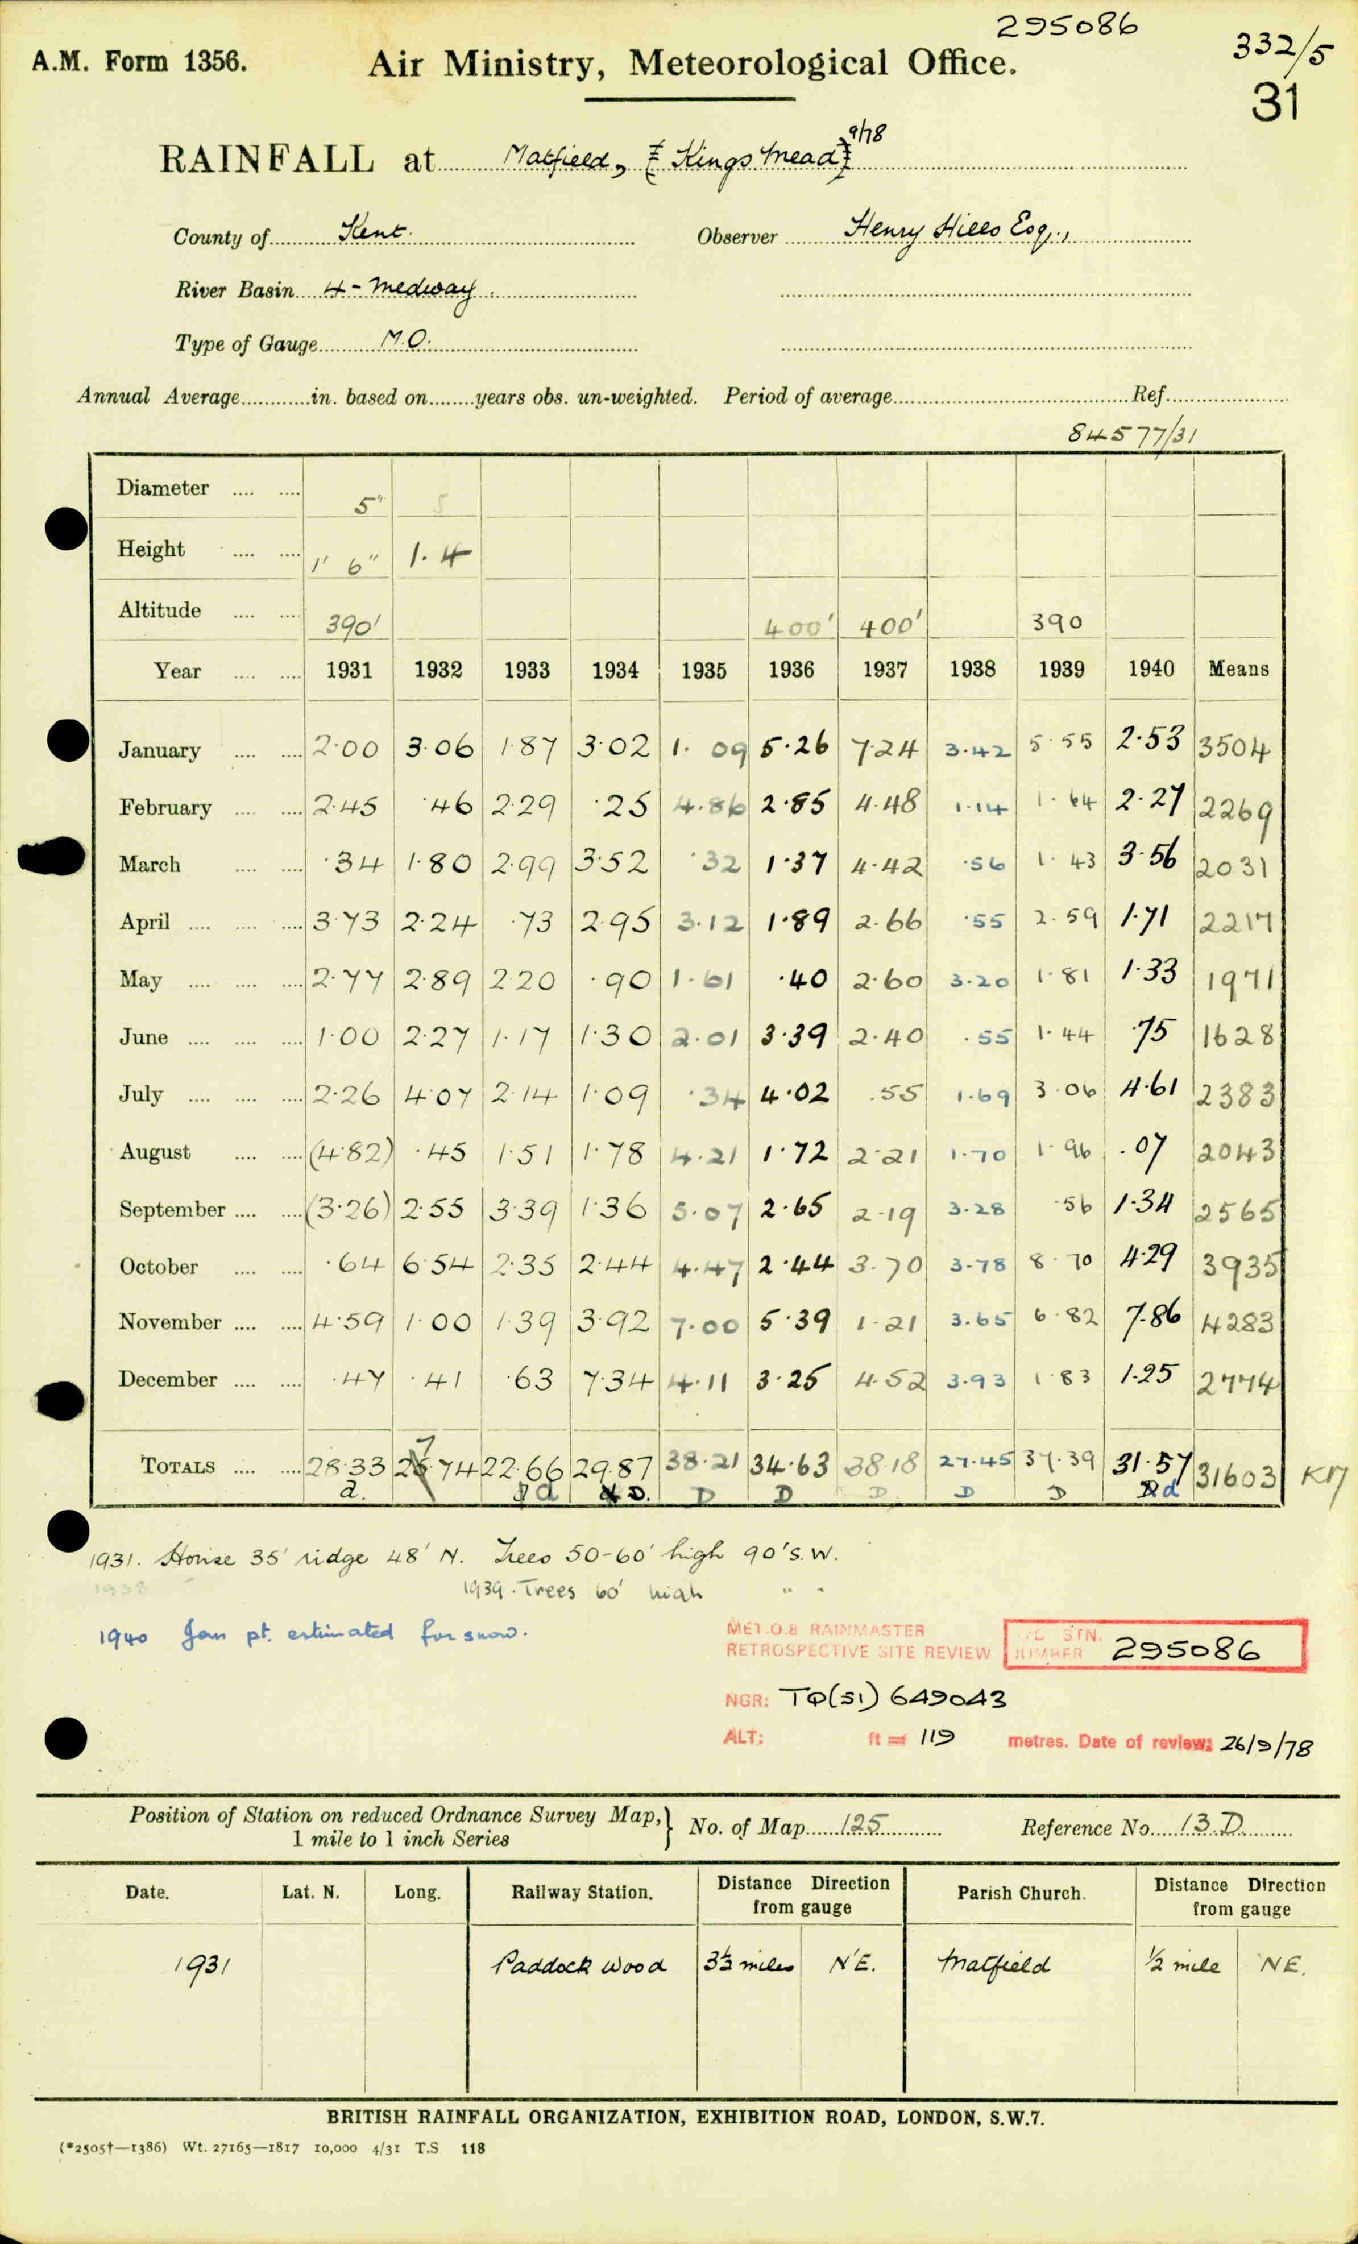 295086
A.M. Form 1356. Air Ministry, Meteorological Office. 332/5
31
RAINFALL at Matfield, [Kingsmead] 9/78
County of Kent. Observer Henry Hills Esq.,
River Basin 4 - Medway.
Type of Gauge M.O.
Annual Average............in. based on........years obs. un-weighted. Period of average.......... Ref..........
84577/31
Diameter .... .... 5" 5
Height .... .... 1' 6" 1.4
Altitude .... .... 390' 400' 400' 390
Year .... .... 1931 1932 1933 1934 1935 1936 1937 1938 1939 1940 Means
January .... .... 2.00 3.06 1.87 3.02 1.09 5.26 7.24 3.42 5.55 2.53 3504
February .... .... 2.45 .46 2.29 .25 4.86 2.85 4.48 1.14 1.64 2.27 2269
March .... .... .34 1.80 2.99 3.52 .32 1.37 4.42 .56 1.43 3.56 2031
April .... .... .... 3.73 2.24 .73 2.95 3.12 1.89 2.66 .55 2.59 1.71 2217
May .... .... .... 2.77 2.89 2.20 .90 1.61 .40 2.60 3.20 1.81 1.33 1971
June .... .... .... 1.00 2.27 1.17 1.30 2.01 3.39 2.40 .55 1.44 .75 1628
July .... .... .... 2.26 4.07 2.14 1.09 .34 4.02 .55 1.69 3.06 4.61 2383
August .... .... (4.82) .45 1.51 1.78 4.21 1.72 2.21 1.70 1.96 .07 2043
September .... .... (3.26) 2.55 3.39 1.36 5.07 2.65 2.19 3.28 .56 1.34 2565
October .... .... .64 6.54 2.35 2.44 4.47 2.44 3.70 3.78 8.70 4.29 3935
November .... .... 4.59 1.00 1.39 3.92 7.00 5.39 1.21 3.65 6.82 7.86 4283
December .... .... .47 .41 .63 7.34 4.11 3.25 4.52 3.93 1.83 1.25 2774
TOTALS .... .... 28.33 27.74 22.66 29.87 38.21 34.63 38.18 27.45 37.39 31.57 31603
d. d D. D D D D D d
1931. House 35' ridge 48' N. Trees 50-60' high 90' S.W.
1938 1939. Trees 60' high " "
1940 Jan pt. estimated for snow.
MET.O.8 RAINMASTER
RETROSPECTIVE SITE REVIEW STN. NUMBER 295086
NGR: TQ(51) 649043
ALT: ft = 119 metres. Date of review: 26/9/78
Position of Station on reduced Ordnance Survey Map, 1 mile to 1 inch Series } No. of Map 125 Reference No. 13.D.
Date. Lat. N. Long. Railway Station. Distance Direction from gauge Parish Church. Distance Direction from gauge
1931 Paddock Wood 3½ miles N.E. Matfield ½ mile NE.
BRITISH RAINFALL ORGANIZATION, EXHIBITION ROAD, LONDON, S.W.7.
(*2505†—1386) Wt. 27165—1817 10,000 4/31 T.S 118